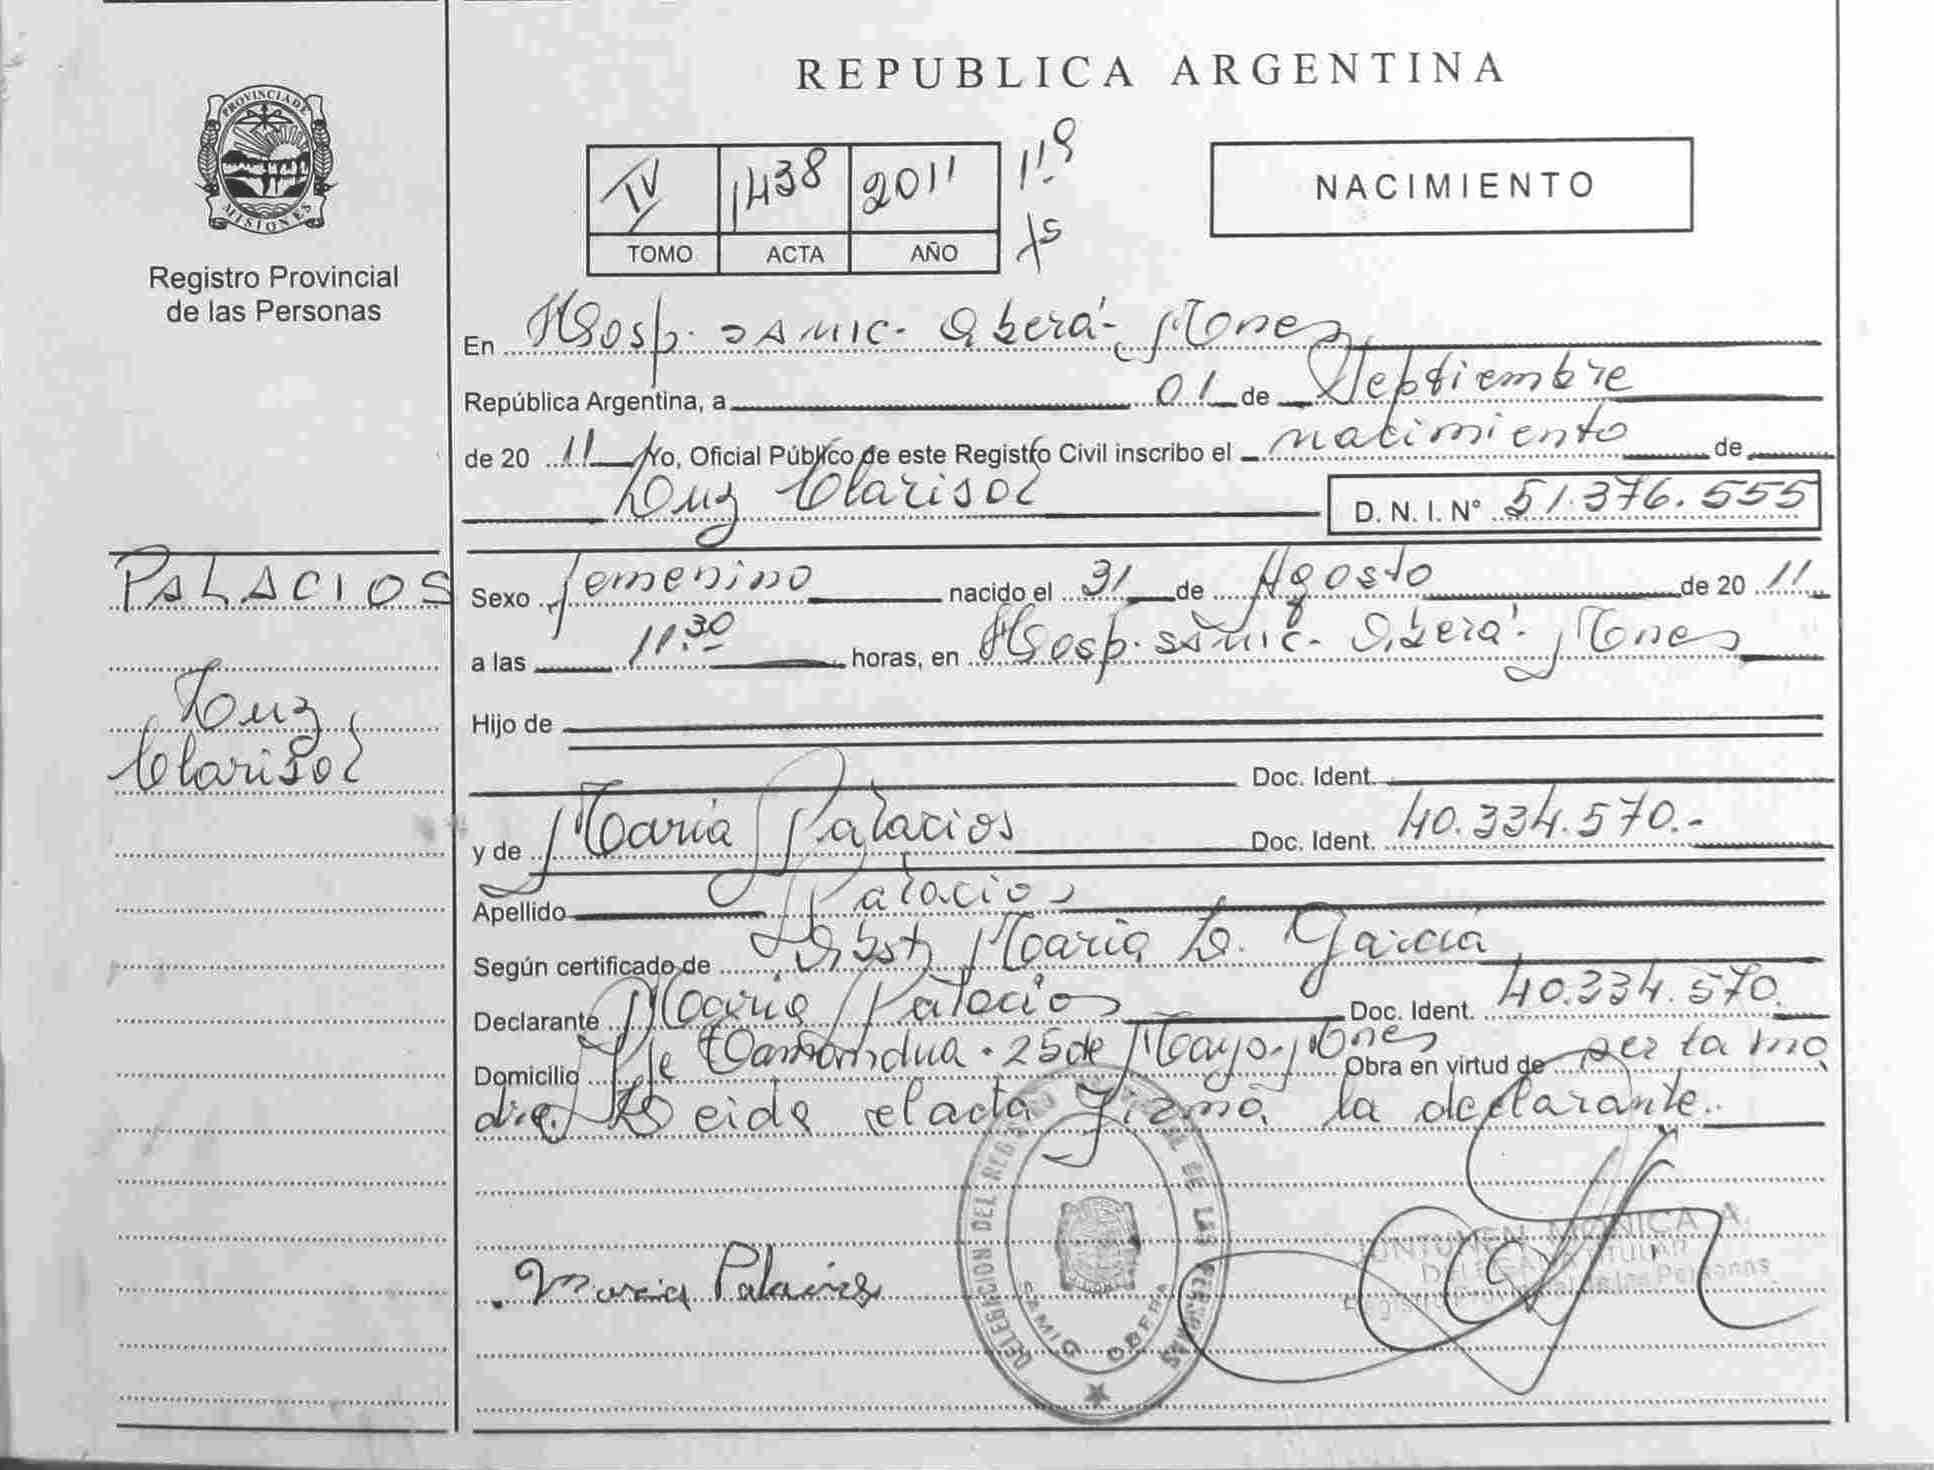 REPUBLICA ARGENTINA
PROVINCIA DE
MISIONES
Registro Provincial
de las Personas
IV 1438 2011
TOMO ACTA AÑO
NACIMIENTO
En Hosp. SAMIC - Oberá - Mnes
República Argentina, a 01 de Septiembre
de 20 11 Yo, Oficial Público de este Registro Civil inscribo el nacimiento de
Luz Clarisol D. N. I. N° 51.376.555
PALACIOS
Luz
Clarisol
Sexo femenino nacido el 31 de Agosto de 20 11
a las 11:30 horas, en Hosp. SAMIC - Oberá - Mnes
Hijo de
Doc. Ident.
y de María Palacios Doc. Ident. 40.334.570.-
Apellido Palacios
Según certificado de Obst. María L. García
Declarante María Palacios Doc. Ident. 40.334.570.
Domicilio 25 de Mayo - Mnes Obra en virtud de ser la ma
dre. Leida el acta firma la declarante.
Maria Palacios
DELEGACION DEL REGISTRO DE LAS PERSONAS
SAMIC OBERA
MONICA A.
DELEGADA TITULAR
Registro Provincial de las Personas